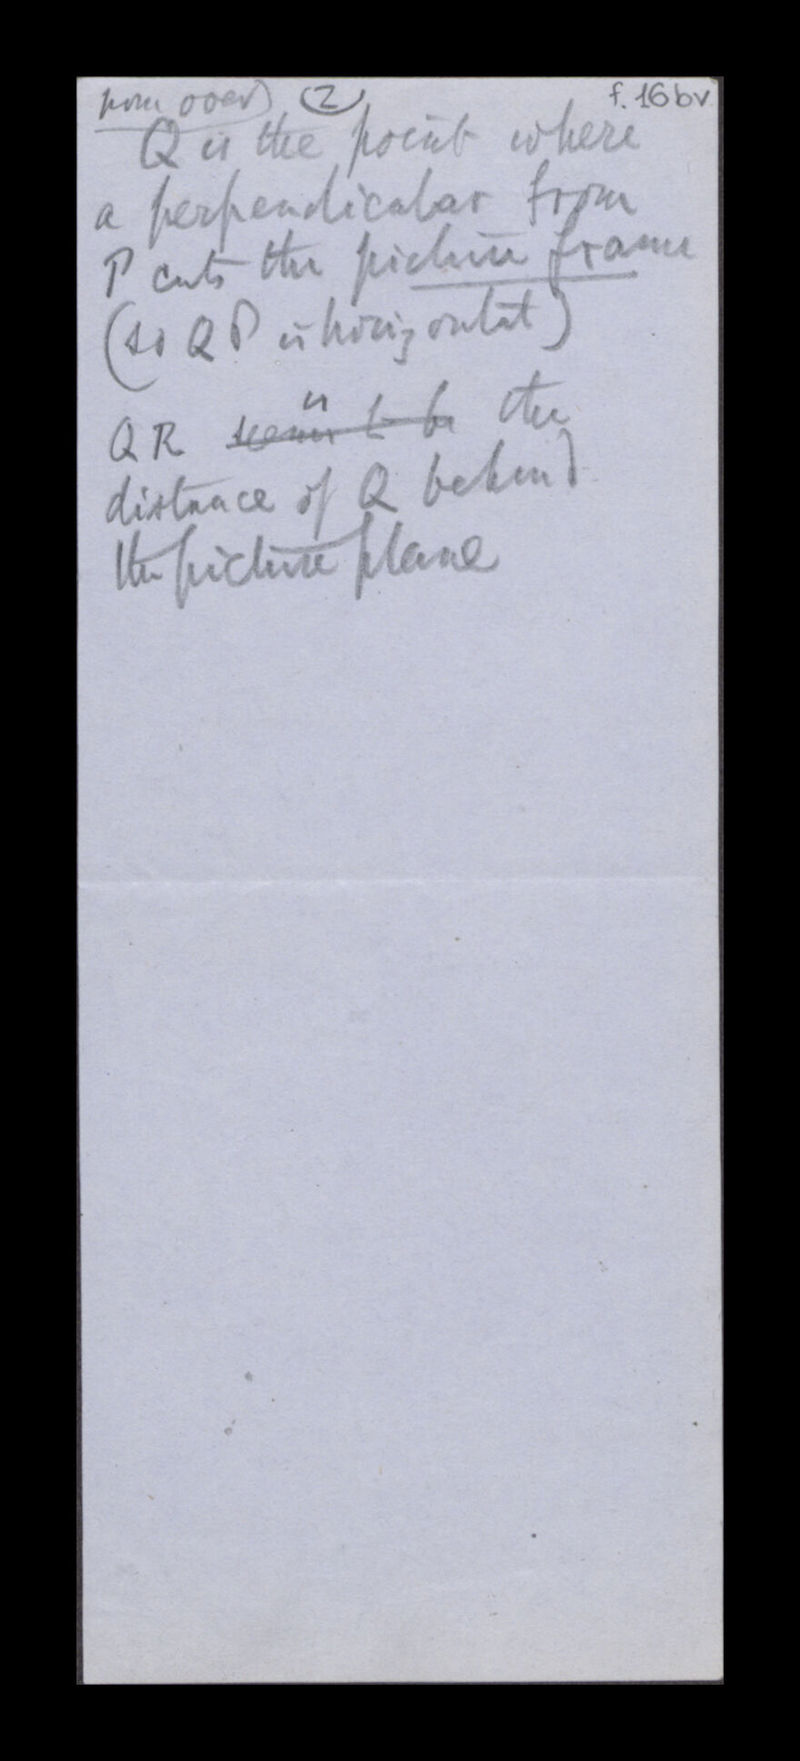 from over) ② f. 16bv
Q is the point where
a perpendicular from
P cuts the picture frame
(so QP is horizontal)
QR seems to be is the
distance of Q behind
the picture plane